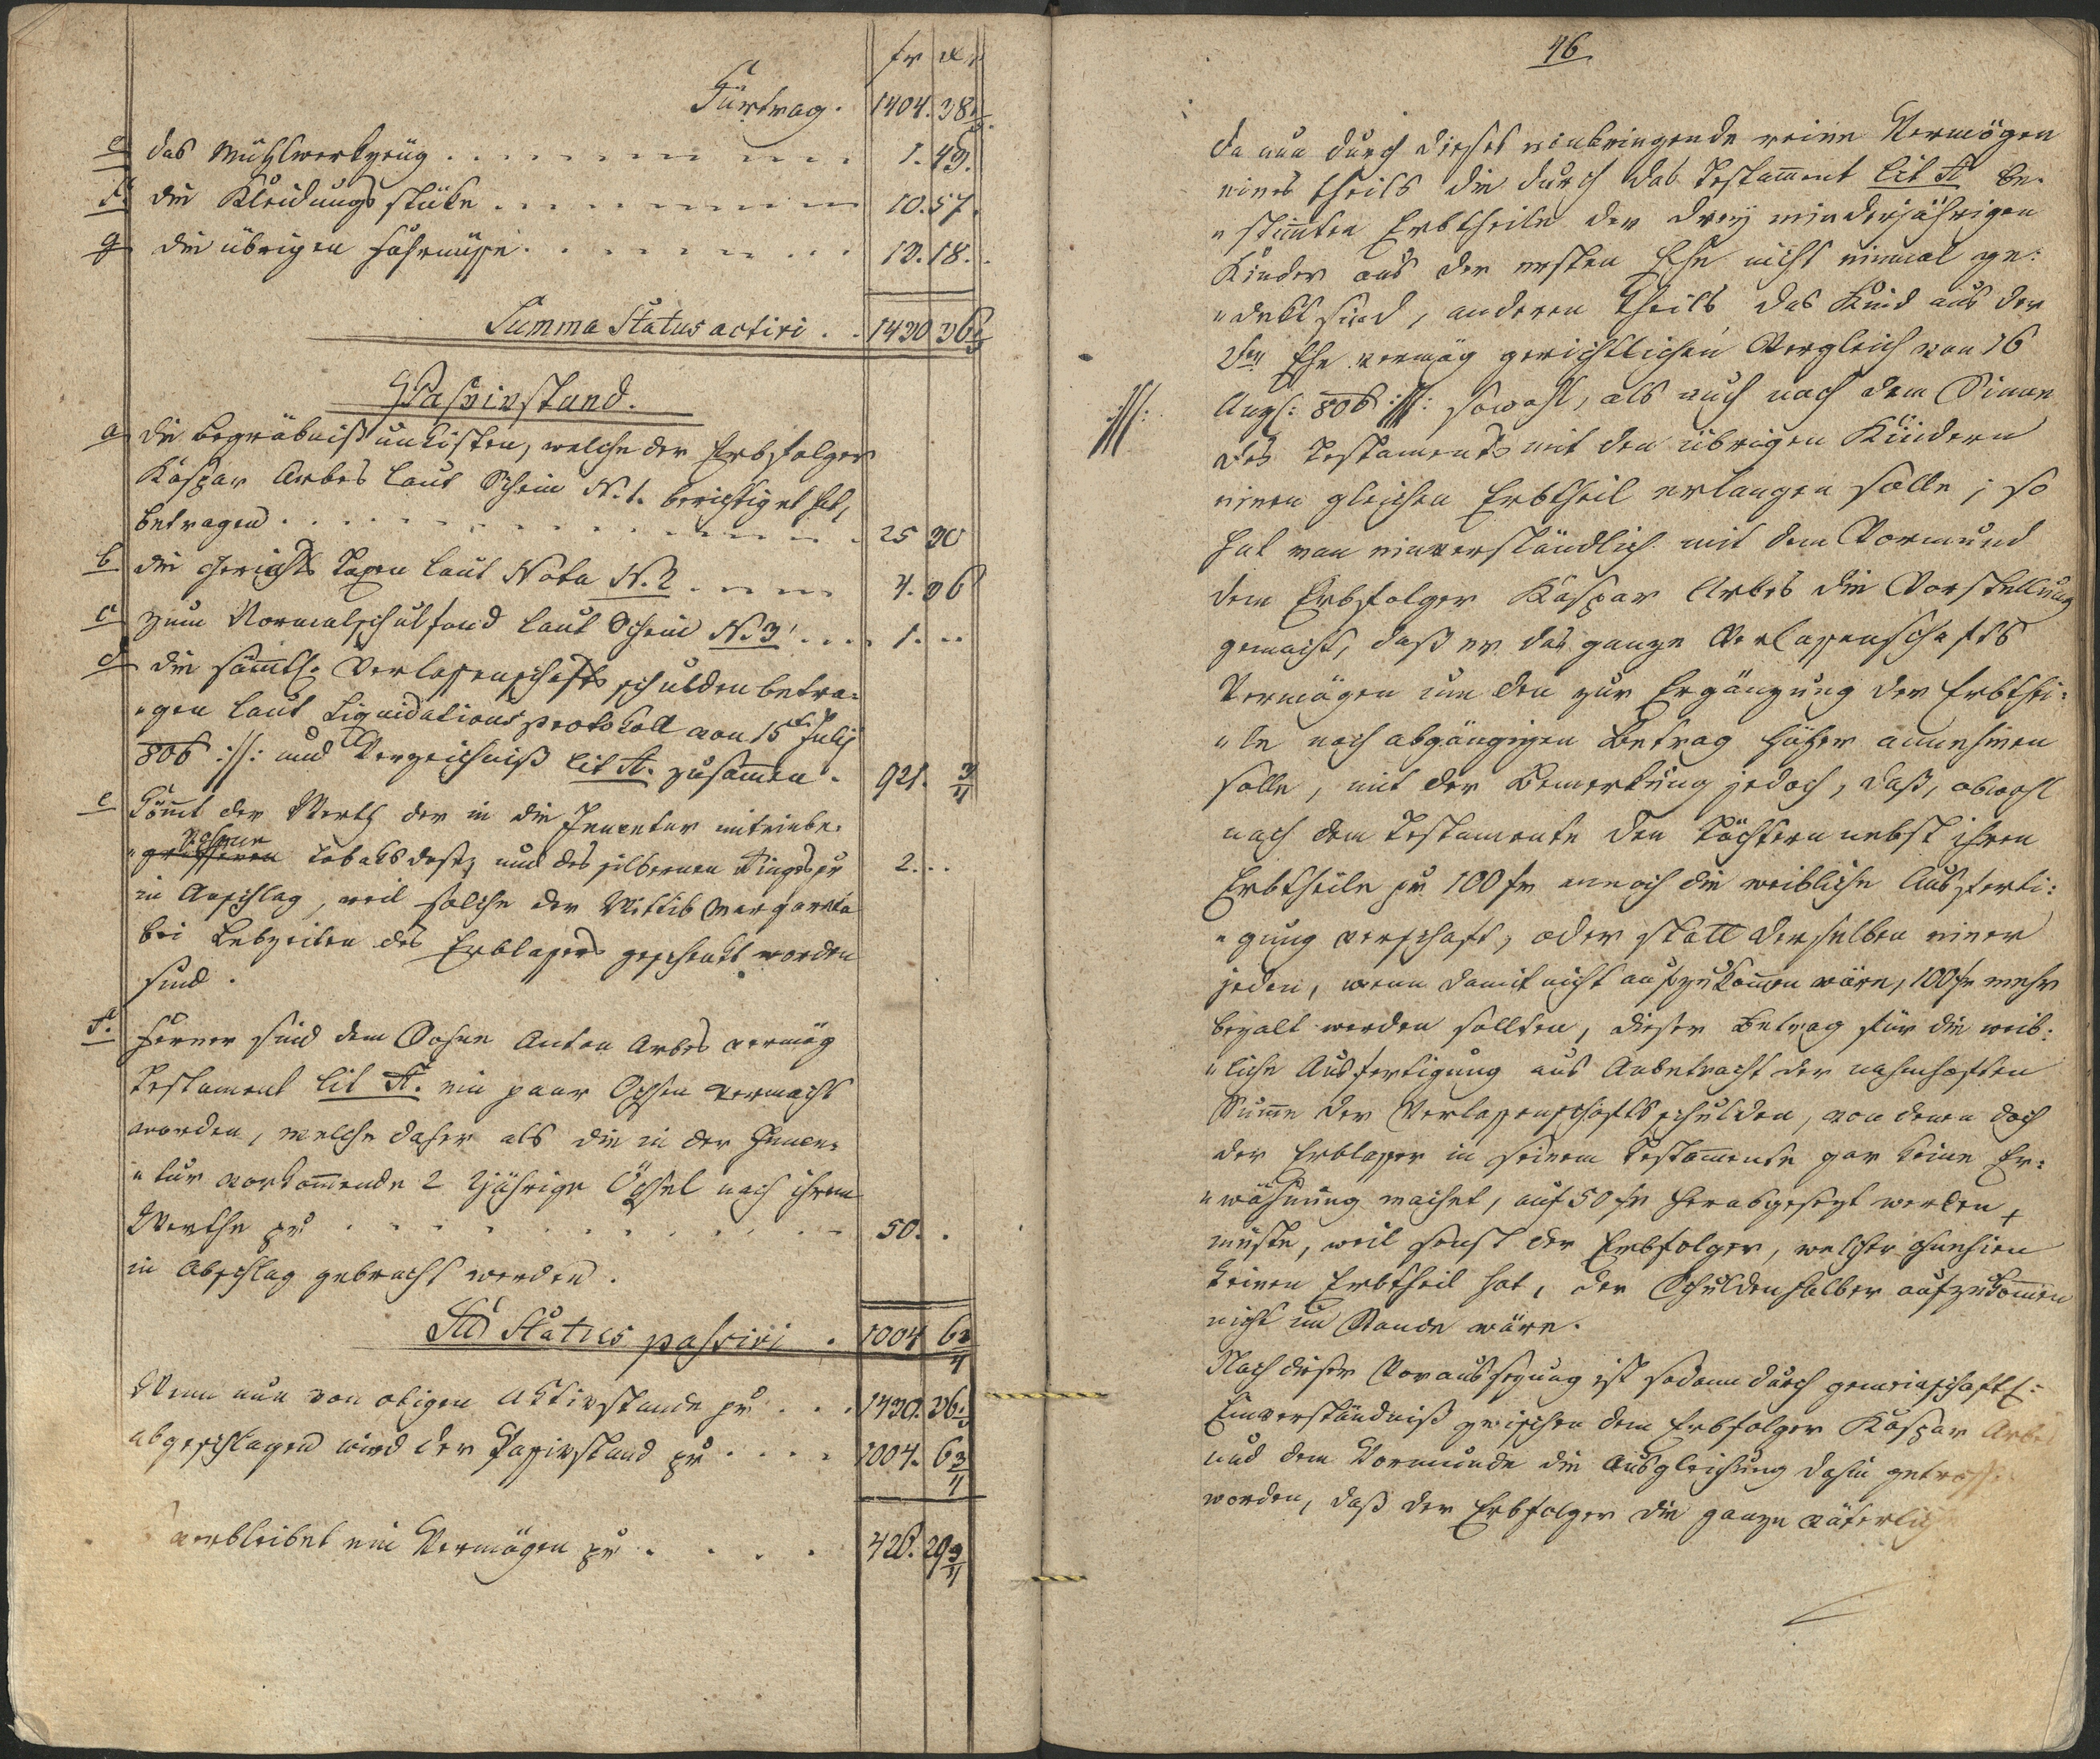 fr xr
Fürtrag. 1404. 38 1/2.
e das Mühlwerkzeug . . . . 1. 43.
f. die Kleidungsstüke . . . . 10. 57.
g die übrigen Fahrnüße . . . . 13. 18.
Summa Status activi . . 1430 36 1/2
Passivstand.
a die Begräbnißunkösten, welche der Erbsfolger
Kaspar Arbes laut Schein N. 1. berichtiget hat,
betragen . . . . 25 30
b. die Gerichts Taxen laut Nota N. 2 . . . . 4. 36
c zum Normalschulfond laut Schein N. 3 . . . . 1. ..
d die sämtl. Verlassenschafts schulden betra-
„gen laut Liquidations protokoll von 15t Julij
806 :/: und Verzeichniß Lit A. zusammen . 921. 3/4
e Kömmt der Werth der in die Inventur mit einbe-
zohenen
„griffenen Tobaksdose, und des silbernen Ringes pr 2. ..
in Abschlag, weil solche der Wittib Margareta
bei Lebzeiten des Erblassers geschenkt worden
sind.
f. Ferner sind dem Sohne Anton Arbes vermög
Testament Lit A. ein paar Ochsen vermacht
worden, welche daher als die in der Inven-
„tur vorkommende 2 2jährige Öchsel nach ihrem
Werthe pr . . . . 50. .
in Abschlag gebracht werden.
Sa Status passivi . 1004 6 3/4
Wenn nun von obigen Aktivstande pr . . . 1430. 36 1/2
abgeschlagen wird der Passivstand pr . . . . 1004. 6 3/4
verbleibet ein Vermögen pr . . . . 426. 29 3/4
46
Da nun durch dieses einbringende reine Vermögen
eines theils die durch das Testament Lit A be-
„stimmten Erbtheile der drey minderjährigen
Kinder aus der ersten Ehe nicht einmal ge-
„dekt sind, anderen theils das Kind aus der
2ten Ehe vermög gerichtlichen Vergleich von 16
:///: Augs: 806 :///: sowohl, als auch nach dem Sinne
des Testaments mit den übrigen Kindern
einen gleichen Erbtheil erlangen solle; so
hat man einverständlich mit dem Vormund
dem Erbsfolger Kaspar Arbes die Vorstellung
gemacht, daß er das ganze Verlassenschafts
Vermögen um den zur Ergänzung der Erbthei-
„le noch abgängigen Betrag höher annehmen
solle, mit der Bemerkung jedoch, daß, obwohl
nach dem Testamente den Töchtern nebst ihren
Erbtheile pr 100 fr annoch die weibliche Ausferti-
„gung verschaft, oder statt derselben einer
jeden, wenn damit nicht auszukommen wäre, 100 fr mehr
bezalt werden sollten, dieser Betrag für die weib-
„liche Ausfertigung aus Anbetracht der nahmhaften
Summe der Verlassenschaftsschulden, von denen doch
der Erblasser in seinem Testamente gar keine Er-
„wähnung machet, auf 50 fr herabgesezt werden
müste, weil sonst der Erbsfolger, welcher ohnehin
keinen Erbtheil hat, der Schulden halber aufzukommen
nicht im Stande wäre.
Nach dieser Voraussezung ist sodann durch gemeinschaftl:
Einverständniß zwischen dem Erbsfolger Kaspar Arbes
und dem Vormunde die Ausgleichung dahin getroffen
worden, daß der Erbsfolger die ganze väterliche